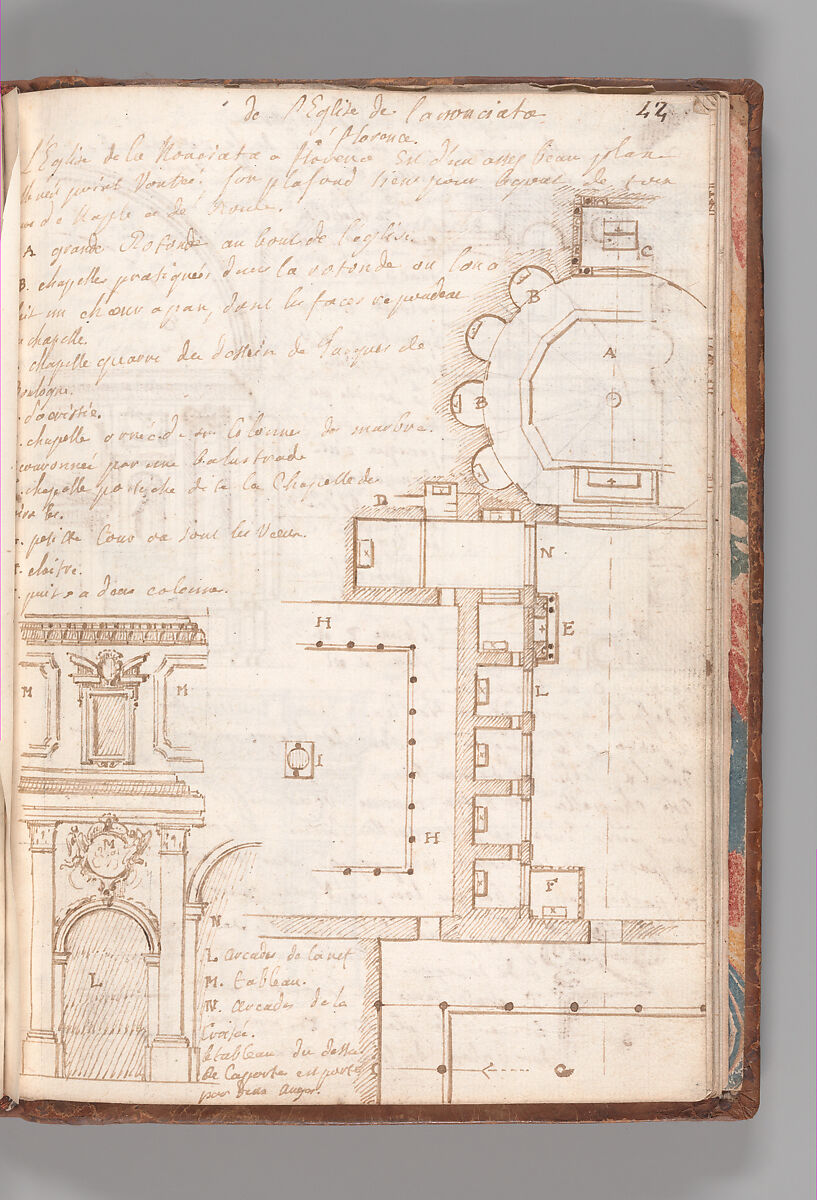 de l'Eglise de lanonciata
42
florence.
L'Eglise de la Nonciata a florence Est d'un assez beau plan
point voutée. son plafond
de Naple et de Rome.
A grande Rotonde au bout de l'eglise.
B. chapelles pratiquées dans la rotonde ou l'on a
fait un chœur a pan, dont les faces repondent
chapelle.
chapelle quarré du dessein de Jacques de
Boulogne.
sacristie.
chapelle ornée de colonne de marbre
couronnée par une balustrade
chapelle postiche dite la Chapelle de
petite Cour ou sont les Vœux.
cloitre.
puits a deux colonne.
C
B
A
B
D
N
E
H
L
I
H
F
M
M
M
L
N
L arcades de la nef
M. tableau.
N. arcades de la
Croisée.
le tableau du dessus
de la porte est porté
par deux anges.
G